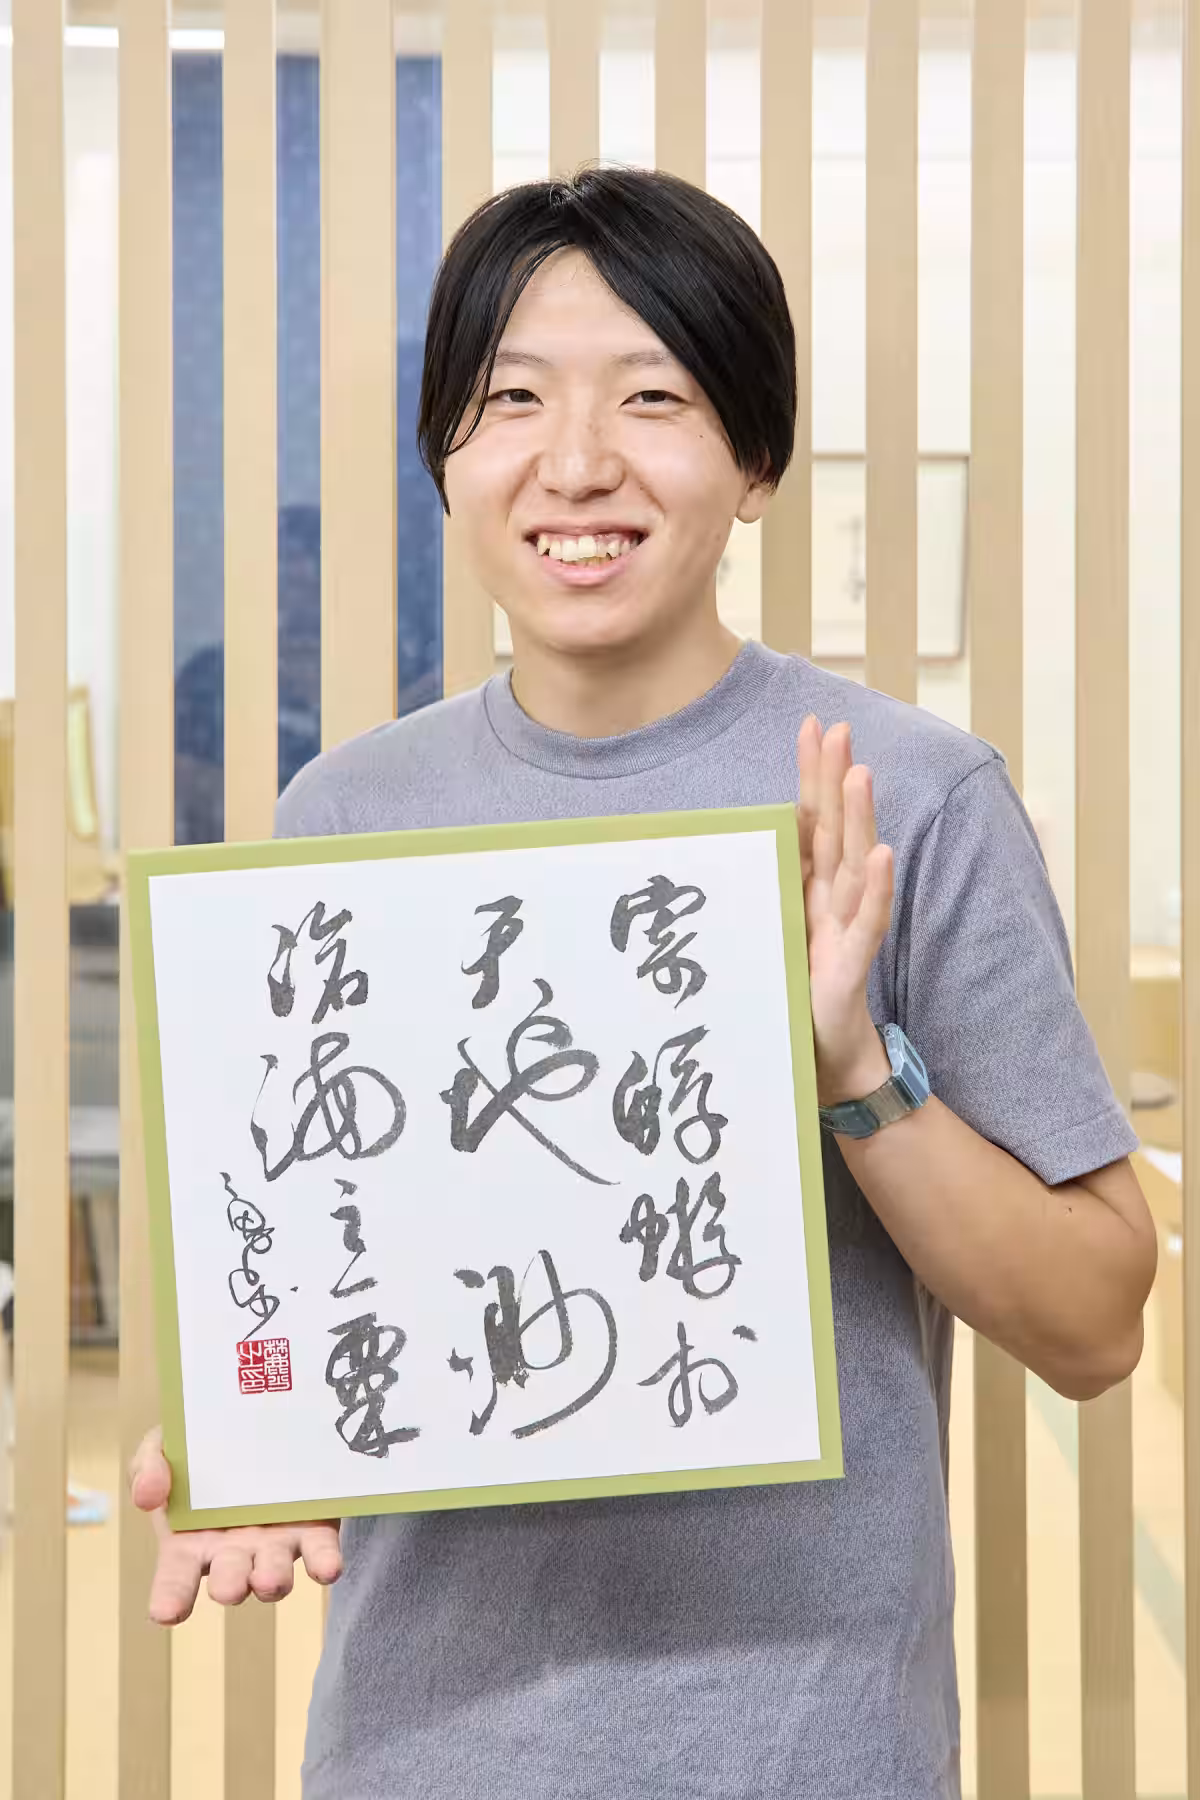 寄蜉蝣於
天地渺
滄海之一粟